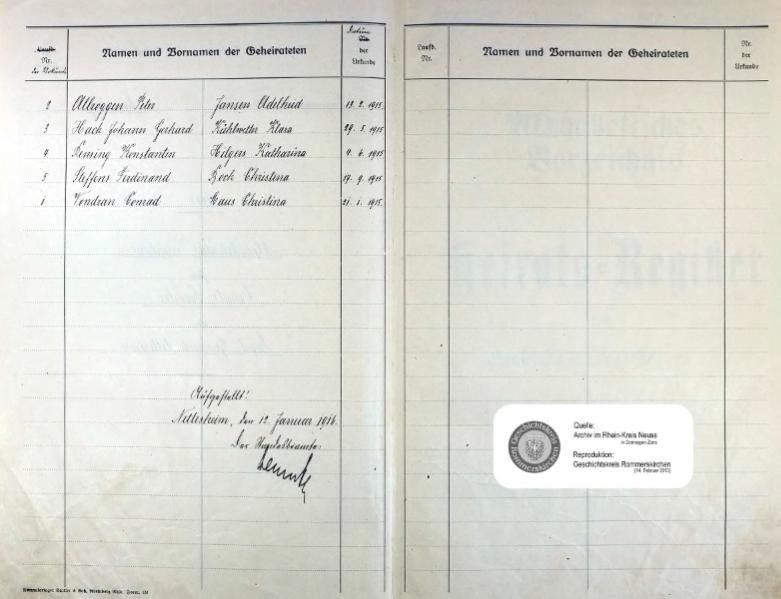 Nr. der Urkunde
Namen und Vornamen der Geheirateten
Datum der Urkunde
2 Allroggen Peter Jansen Adelheid 13. 2. 1915
3 Hack Johann Gerhard Kühlwetter Klara 29. 5. 1915
4 Kensing Konstantin Hilgers Katharina 9. 6. 1915
5 Steffens Ferdinand Zock Christina 17. 9. 1915
1 Vendran Conrad Haus Christina 21. 1. 1915
Aufgestellt!
Nettesheim, den 12. Januar 1916.
Der Standesbeamte
Laufd. Nr.
Namen und Vornamen der Geheirateten
Nr. der Urkunde
Heirats-Register
Geschichtskreis Rommerskirchen
Quelle:
Archiv im Rhein-Kreis Neuss
in Dormagen-Zons
Reproduktion:
Geschichtskreis Rommerskirchen